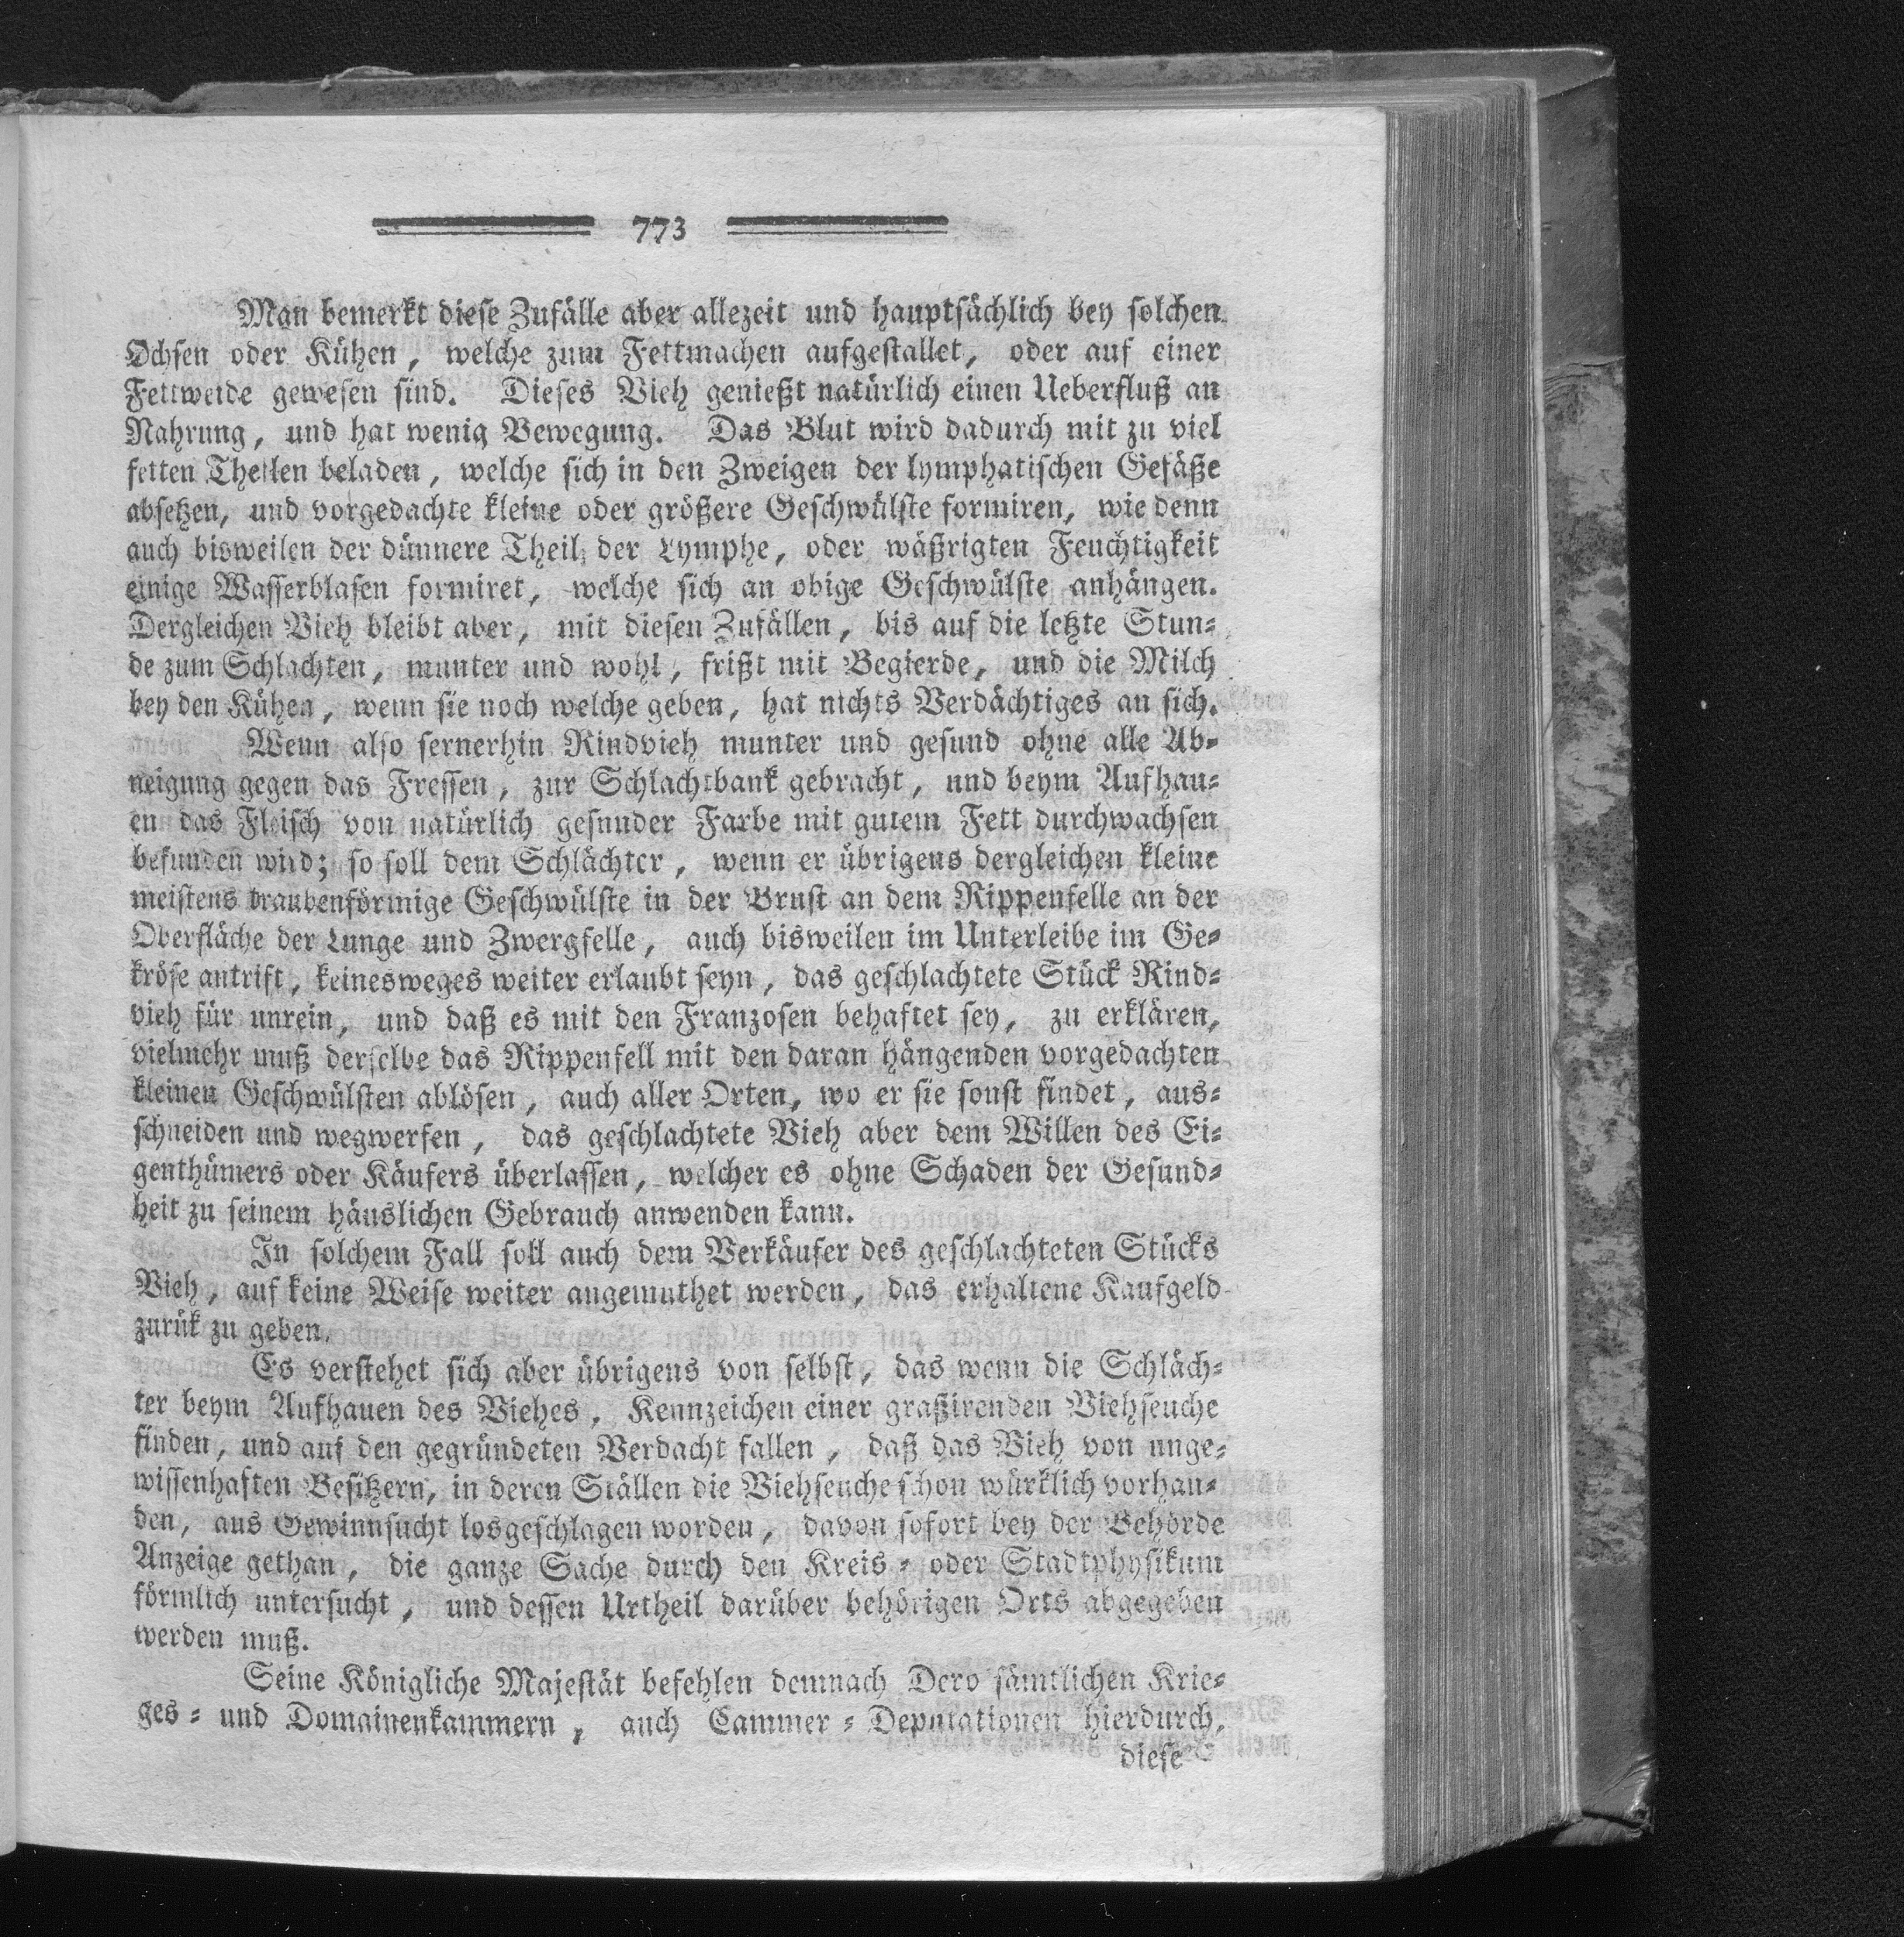 773
Man bemerkt diese Zufälle aber allezeit und hauptsächlich bey solchen
Ochsen oder Kühen, welche zum Fettmachen aufgestallet, oder auf einer
Fettweide gewesen sind. Dieses Vieh genießt natürlich einen Ueberfluß an
Nahrung, und hat wenig Bewegung. Das Blut wird dadurch mit zu viel
fetten Theilen beladen, welche sich in den Zweigen der lymphatischen Gefäße
absetzen, und vorgedachte kleine oder größere Geschwülste formiren, wie denn
auch bisweilen der dünnere Theil der Lymphe, oder wäßrigten Feuchtigkeit
einige Wasserblasen formiret, welche sich an obige Geschwülste anhängen.
Dergleichen Vieh bleibt aber, mit diesen Zufällen, bis auf die letzte Stun-
de zum Schlachten, munter und wohl, frißt mit Begierde, und die Milch
bey den Kühen, wenn sie noch welche geben, hat nichts Verdächtiges an sich.
Wenn also fernerhin Rindvieh munter und gesund ohne alle Ab-
neigung gegen das Fressen, zur Schlachtbank gebracht, und beym Aufhau-
en das Fleisch von natürlich gesunder Farbe mit gutem Fett durchwachsen
befunden wird; so soll dem Schlächter, wenn er übrigens dergleichen kleine
meistens traubenförmige Geschwülste in der Brust an dem Rippenfelle an der
Oberfläche der Lunge und Zwergfelle, auch bisweilen im Unterleibe im Ge-
kröse antrift, keinesweges weiter erlaubt seyn, das geschlachtete Stück Rind-
vieh für unrein, und daß es mit den Franzosen behaftet sey, zu erklären,
vielmehr muß derselbe das Rippenfell mit den daran hängenden vorgedachten
kleinen Geschwülsten ablösen, auch aller Orten, wo er sie sonst findet, aus-
schneiden und wegwerfen, das geschlachtete Vieh aber dem Willen des Ei-
genthümers oder Käufers überlassen, welcher es ohne Schaden der Gesund-
heit zu seinem häuslichen Gebrauch anwenden kann.
In solchem Fall soll auch dem Verkäufer des geschlachteten Stücks
Vieh, auf keine Weise weiter angemuthet werden, das erhaltene Kaufgeld
zurük zu geben.
Es verstehet sich aber übrigens von selbst, das wenn die Schläch-
ter beym Aufhauen des Viehes, Kennzeichen einer graßirenden Viehseuche
finden, und auf den gegründeten Verdacht fallen, daß das Vieh von unge-
wissenhaften Besitzern, in deren Ställen die Viehseuche schon würklich vorhan-
den, aus Gewinnsucht losgeschlagen worden, davon sofort bey der Behörde
Anzeige gethan, die ganze Sache durch den Kreis- oder Stadtphysikum
förmlich untersucht, und dessen Urtheil darüber behörigen Orts abgegeben
werden muß.
Seine Königliche Majestät befehlen demnach Dero sämtlichen Krie-
ges- und Domainenkammern, auch Cammer-Deputationen hierdurch,
diese